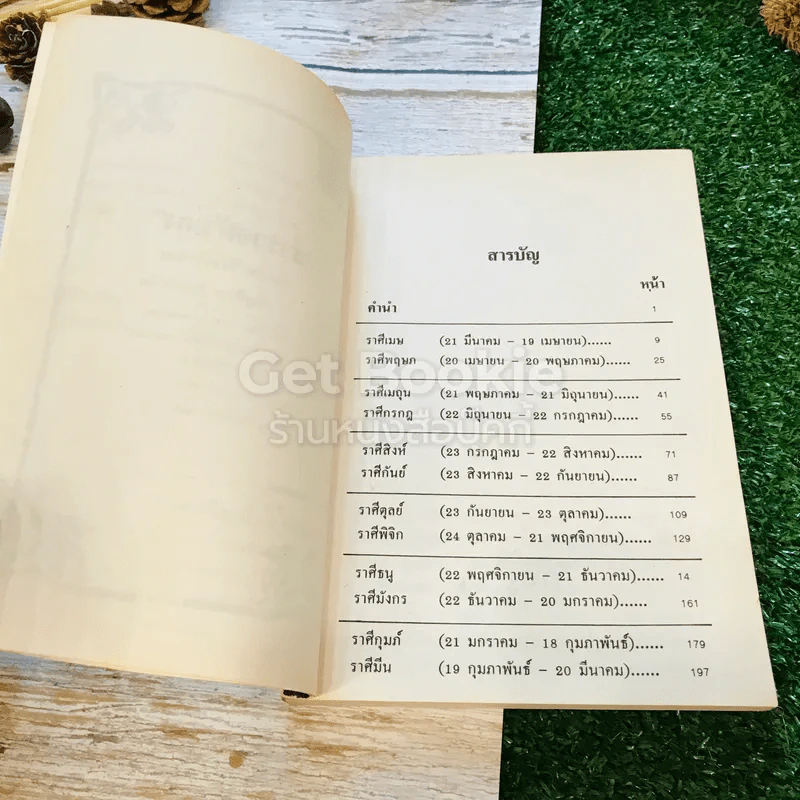 สารบัญ
หน้า
คำนำ 1
ราศีเมษ (21 มีนาคม – 19 เมษายน)...... 9
ราศีพฤษภ (20 เมษายน – 20 พฤษภาคม) 25
Get Bookie
ราศีเมถุน (21 พฤษภาคม – 21 มิถุนายน)...... 41
ราศีกรกฎ (22 มิถุนายน – 22 กรกฎาคม) 55
ร้านหนังสือบุ๊คกี้
ราศีสิงห์ (23 กรกฎาคม – 22 สิงหาคม)...... 71
ราศีกันย์ (23 สิงหาคม – 22 กันยายน)...... 87
ราศีตุลย์ (23 กันยายน – 23 ตุลาคม)...... 109
ราศีพิจิก (24 ตุลาคม – 21 พฤศจิกายน)...... 129
ราศีธนู (22 พฤศจิกายน – 21 ธันวาคม)...... 14
ราศีมังกร (22 ธันวาคม – 20 มกราคม)...... 161
ราศีกุมภ์ (21 มกราคม – 18 กุมภาพันธ์)...... 179
ราศีมีน (19 กุมภาพันธ์ – 20 มีนาคม)...... 197